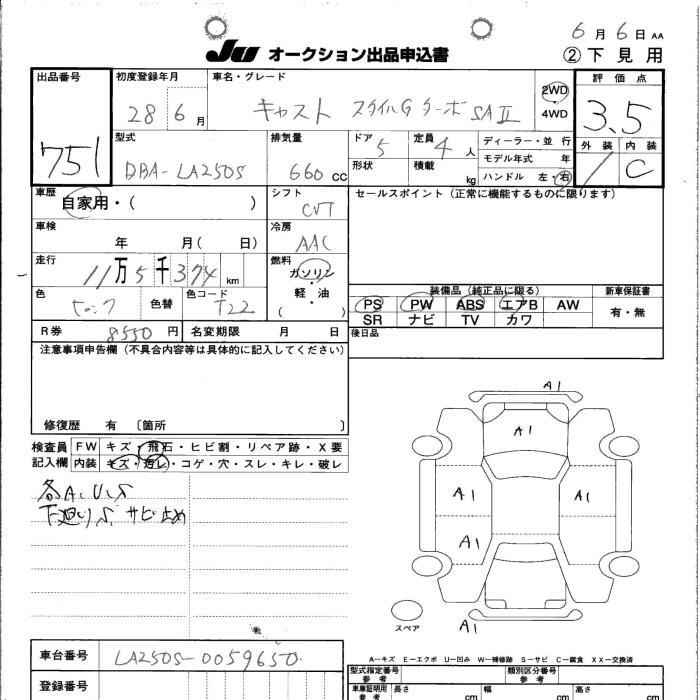 6月6日 AA
JU オークション出品申込書 ②下見用
出品番号 初度登録年月 車名・グレード 評価点
751 28 6月 キャスト スタイルG ターボ SAⅡ 2WD 4WD 3.5
型式 排気量 ドア 定員 ディーラー・並行 外装 内装
DBA-LA250S 660cc 5 4人 モデル年式 年 C
形状 積載 kg ハンドル 左・右
車歴 シフト セールスポイント(正常に機能するものに限ります)
自家用・( ) CVT
車検 冷房
年 月( 日) AAC
走行 燃料
11万5千374km ガソリン・軽・油 ( )
色 色替 色コード 装備品(純正品に限る) 新車保証書
T22 PS PW ABS エアB AW 有・無
SR ナビ TV カワ
R券 8550円 名変期限 月 日 後日品
注意事項申告欄(不具合内容等は具体的に記入してください)
修復歴 有 〔箇所 〕
検査員記入欄 FW キズ・飛石・ヒビ割・リペア跡・X要
内装 キズ・汚レ・コゲ・穴・スレ・キレ・破レ
各A、U、S
下廻りS サビ止め
A1
A1
A1 A1
A1
スペア A1
A-キズ E-エクボ U-凹み W-補修跡 S-サビ C-腐食 XX-交換済
車台番号 LA250S-0059650
型式指定番号 参考 類別区分番号 参考
登録番号 車庫証明用 参考 長さ cm 幅 cm 高さ cm